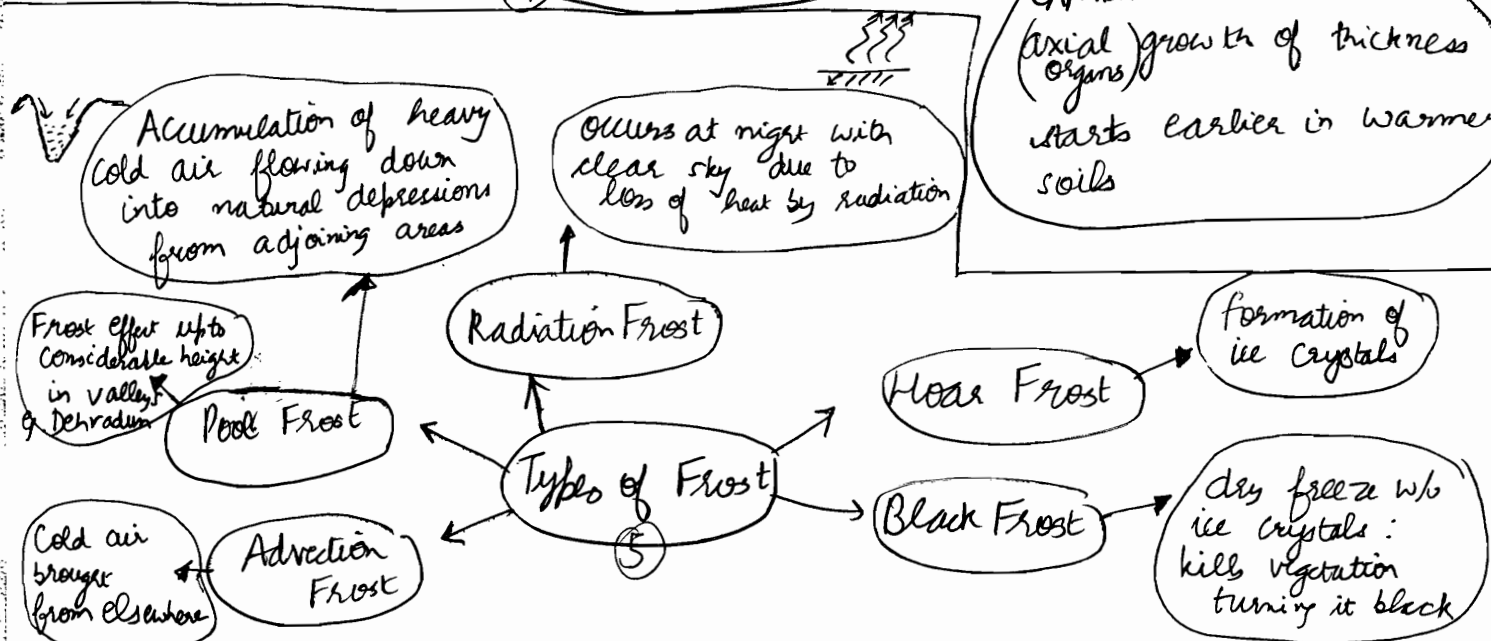 (axial organs) growth of thickness
starts earlier in warmer
soils
Accumulation of heavy
cold air flowing down
into natural depressions
from adjoining areas
Occurs at night with
clear sky due to
loss of heat by radiation
Frost effect upto
considerable height
in valleys
Dehradun
Pool Frost
Radiation Frost
Hoar Frost
formation of
ice crystals
Types of Frost
5
Black Frost
dry freeze w/o
ice crystals :
kills vegetation
turning it black
Advection
Frost
Cold air
brought
from elsewhere